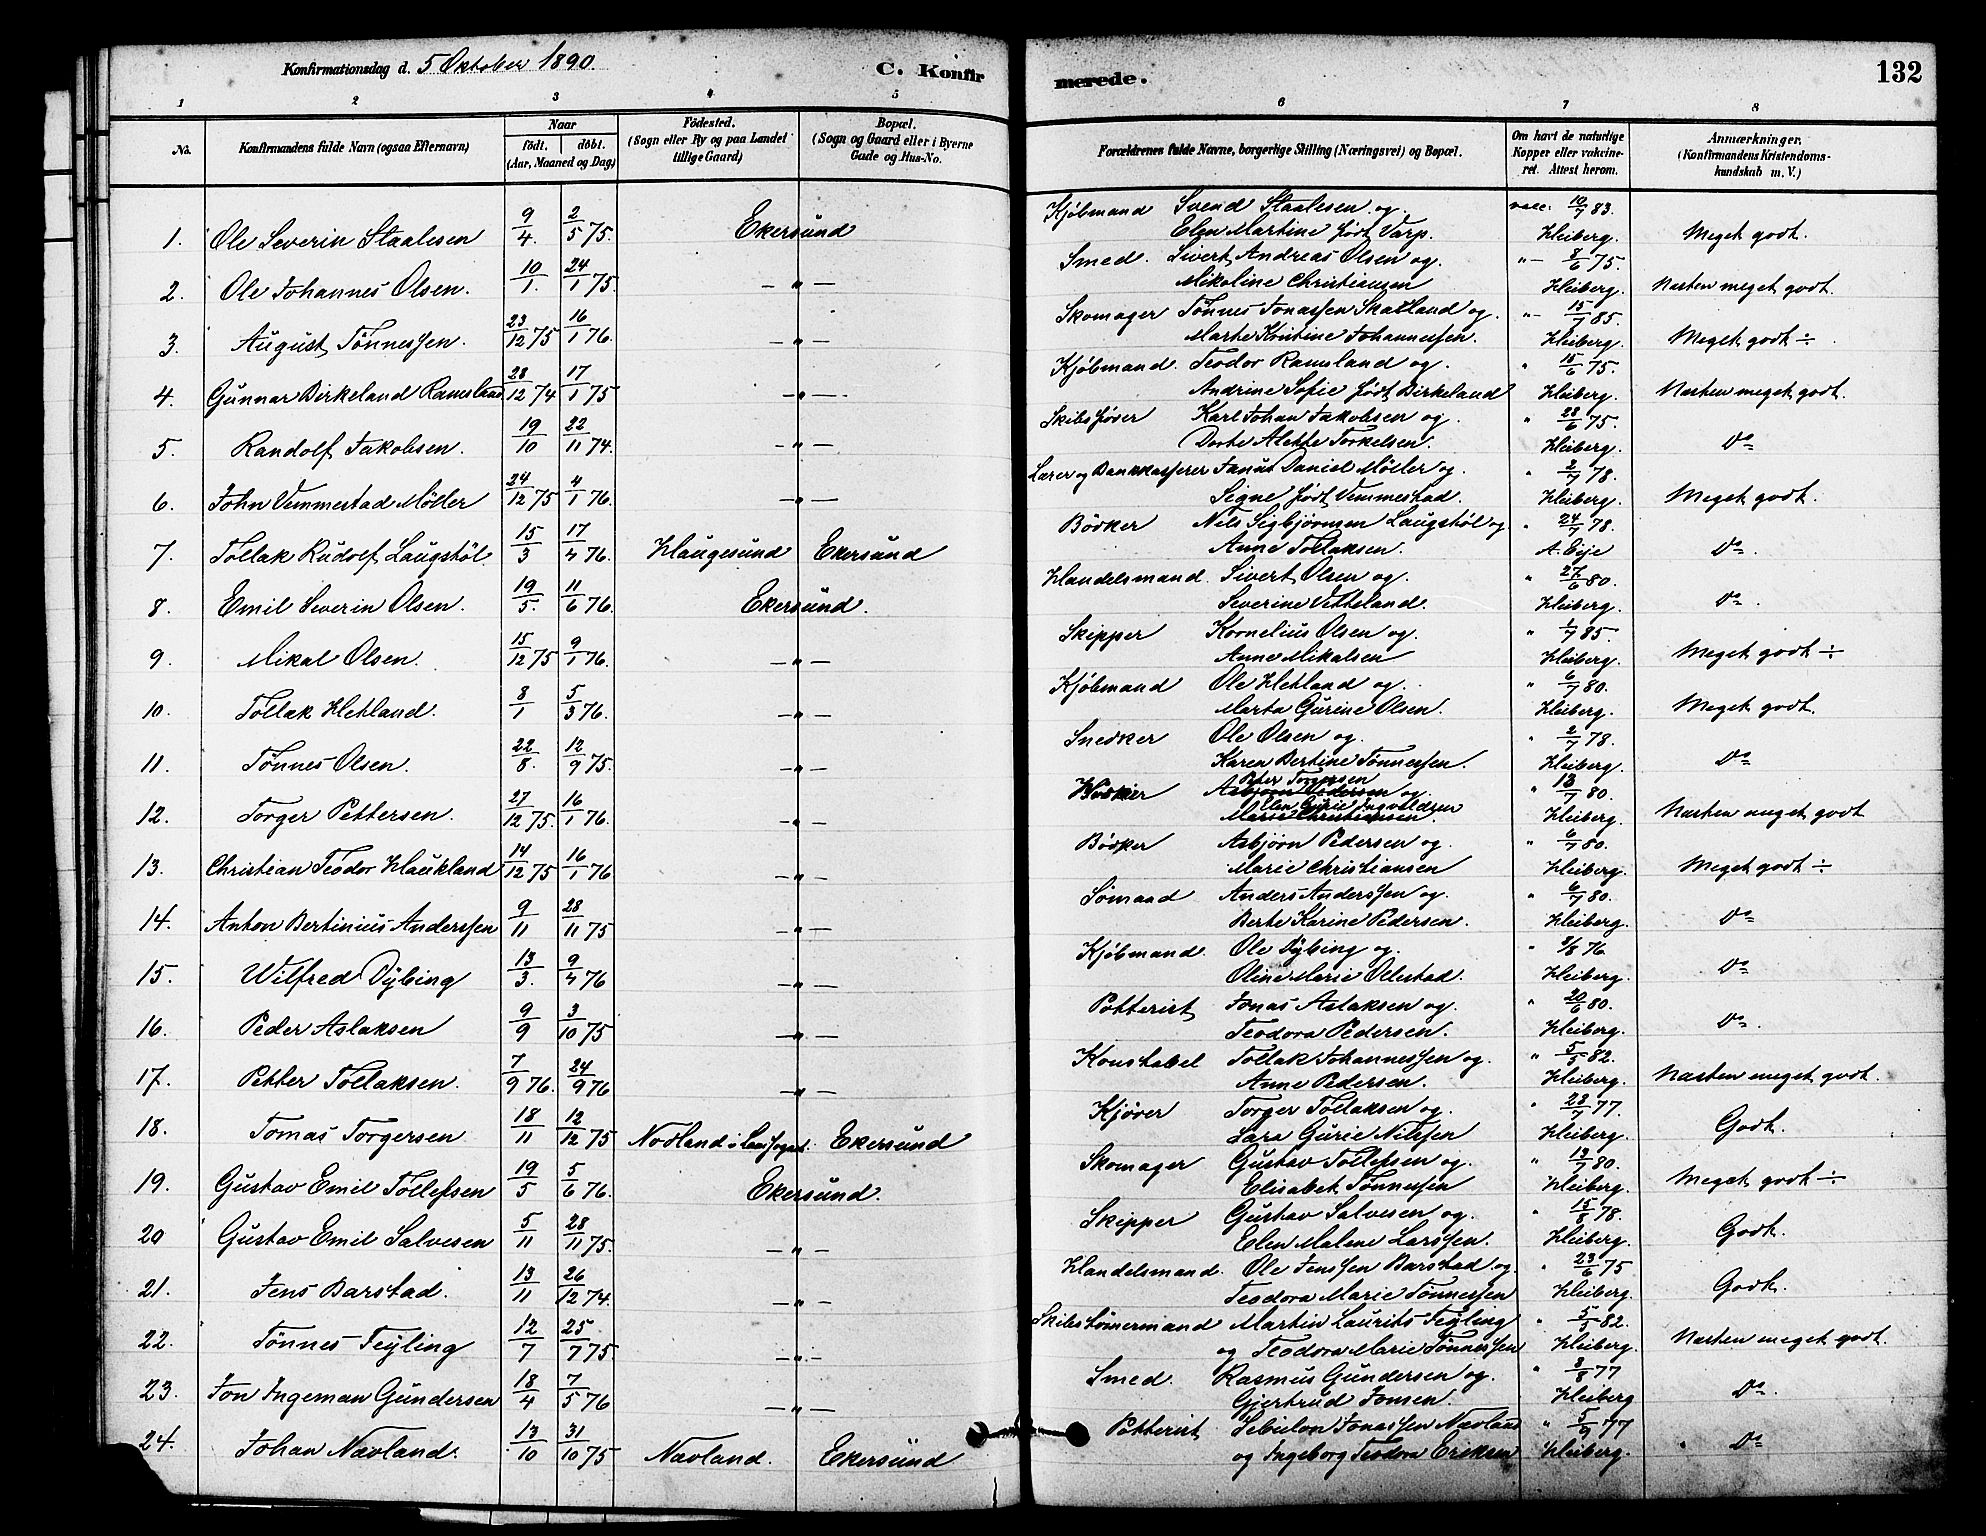 Konfirmationsdag d. 5 Oktober 1890. C. Konfirmerede. 132
1 2 3 4 5 6 7 8
No. Konfirmandens fulde Navn (ogsaa Efternavn) Naar født. døbt. (Aar, Maaned og Dag) Fødested. (Sogn eller By og paa Landet tillige Gaard) Bopæl. (Sogn og Gaard eller i Byerne Gade og Hus-No. Forældrenes fulde Navne, borgerlige Stilling (Næringsvei) og Bopæl. Om havt de naturlige Kopper eller vakcineret. Attest herom. Anmærkninger. (Konfirmandens Kristendomskundskab m. V.)
1. Ole Severin Staalesen 9/4. 2/5 75. Ekersund Kjøbmand Svend Staalesen og vacc. 10/7 83.
Elen Martine født Varp. Heiberg. Meget godt.
2. Ole Johannes Olsen. 10/1. 24/1 75. —"— Smed. Sivert Andreas Olsen og "— 8/6 75.
Mikoline Christiansen Heiberg. Næsten meget godt.
3. August Tønnessen. 23/12 75 16/1 76. —"— Skomager Tønnes Jonassen Skatland og "— 15/7 85.
Marte Kristine Johannessen. Heiberg. Meget godt ÷
4. Gunnar Birkeland Ramsland 28/12 74 17/1 75 —"— Kjøbmand. Teodor Ramsland og " 15/6 75.
Andrine Sofie født Birkeland Heiberg. Næsten meget godt.
5. Randolf Jakobsen. 19/10 22/11 74. —"— Skibsfører Karl Johan Jakobsen og " 28/6 75.
Dorte Alette Torkelsen. Heiberg. Do
6. John Vemmestad Møller 24/12 75 4/1 76. —"— Lærer og Bankkasserer Janus Daniel Møller og " 2/7 78.
Signe født Vemmestad. Heiberg. Meget godt.
7. Tollak Rudolf Laugstøl. 15/3 17/4 76. Haugesund Ekersund Bødker Nils Sigbjørnsen Laugstøl og " 24/7 78.
Anne Tollaksen. A. Eje Do.
8. Emil Severin Olsen. 19/5. 11/6 76. Ekersund. Handelsmand. Sivert Olsen og " 27/6 80.
Severine Vetteland. Heiberg. Do.
9. Mikal Olsen. 15/12 75 9/1 76. —"— Skipper Kornelius Olsen og " 1/7 85.
Anne Mikalsen Heiberg. Meget godt ÷
10. Tollak Hetland. 8/1 5/3 76. —"— Kjøbmand Ole Hetland og " 6/7 80.
Marta Gurine Olsen. Heiberg. Meget godt.
11. Tønnes Olsen. 22/8. 12/9 75. —"— Snedker Ole Olsen og " 2/7 78.
Karen Bertine Tønnessen. Heiberg. Do
12. Torger Pettersen. 27/12 75. 16/1 76. —"— Peter Torgersen Asbjørn Pedersen og " 13/7 80.
Elen Gurie Ingvaldsen Marie Christiansen. Heiberg. Næsten meget godt
13. Christian Teodor Haukland 14/12 75 16/1 76 —"— Bødker Asbjørn Pedersen og " 6/7 80.
Marie Christiansen Heiberg. Meget godt ÷
14. Anton Bertinius Anderssen 9/11 28/11 75 —"— Sømand Anders Anderssen og " 6/7 80.
Berte Karine Pedersen. Heiberg. Do
15. Wilfred Dybing 13/3. 9/4 76 —"— Kjøbmand. Ole Dybing og " 2/8 76
Oline Marie Ollestad. Heiberg. Do
16. Peder Aslaksen 9/9 3/10 75 —"— Potterist Jonas Aslaksen og " 20/6 80.
Teodora Pedersen. Heiberg. Do.
17. Petter Tollaksen. 7/9 76. 24/9 76 —"— Konstabel Tollak Johannessen og " 5/5 82.
Anne Pedersen. Heiberg. Næsten meget godt.
18. Tomas Torgersen 18/11 12/12 75 Nodland i Ekersund Kjører Torger Tollaksen og " 28/7 77.
Sara Gurie Nilssen Heiberg. Godt.
19. Gustav Emil Tollefsen 19/5 5/6 76. Ekersund. Skomager Gustav Tollefsen og " 13/7 80.
Elisabet Tønnessen Heiberg. Meget godt ÷
20 Gustav Emil Salvesen 5/11 28/11 75. —"— Skipper Gustav Salvesen og " 15/8 78.
Elen Malene Larssen. Heiberg. Godt.
21. Jens Barstad. 13/11 26/12 74. —"— Handelsmand. Ole Jenssen Barstad og " 23/6 75
Teodora Marie Tønnessen Heiberg. Godt.
22. Tønnes Feyling 12/7 25/7 75. —"— Skibstømermand Martin Laurits Feyling " 5/5 82.
og Teodora Marie Tønnessen Heiberg. Næsten meget godt.
23. Jon Ingeman Gundersen 18/4 7/5 76 —"— Smed. Rasmus Gundersen og " 8/8 77
Gjertrud Jonsen. Heiberg Do.
24. Johan Nævland. 13/10 31/10 75 Nævland. Ekersund Potterist Sebulon Jonassen Nævland " 5/7 77
og Ingeborg Teodora Eriksen Heiberg. " Do